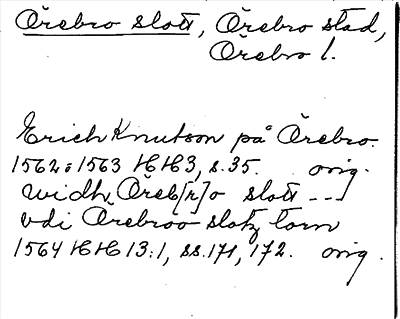 Örebro slott, Örebro stad,
Örebro l.
Erich Knutson på Örebro.
1562 o 1563 HH3, s. 35. orig.
widh Öreb[r]o slott ---
vdi Örebroo slotz torn
1564 HH 13:1, ss. 171, 172. orig.